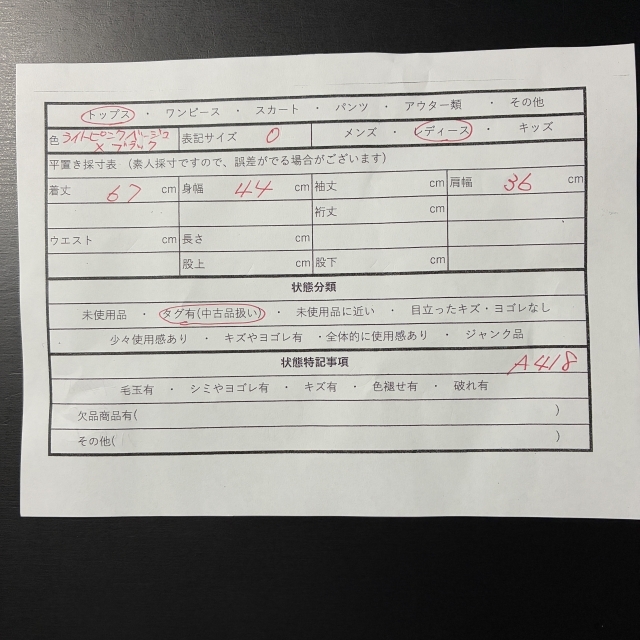 トップス ・ ワンピース ・ スカート ・ パンツ ・ アウター類 ・ その他
色 ライトピンクベージュ×ブラック 表記サイズ 0 メンズ ・ レディース ・ キッズ
平置き採寸表 （素人採寸ですので、誤差がでる場合がございます）
着丈 67 cm 身幅 44 cm 袖丈 cm 肩幅 36 cm
裄丈 cm
ウエスト cm 長さ cm
股上 cm 股下 cm
状態分類
未使用品 ・ タグ有(中古品扱い) ・ 未使用品に近い ・ 目立ったキズ・ヨゴレなし
少々使用感あり ・ キズやヨゴレ有 ・全体的に使用感あり ・ ジャンク品
状態特記事項 A418
毛玉有 ・ シミやヨゴレ有 ・ キズ有 ・ 色褪せ有 ・ 破れ有
欠品商品有( )
その他( )